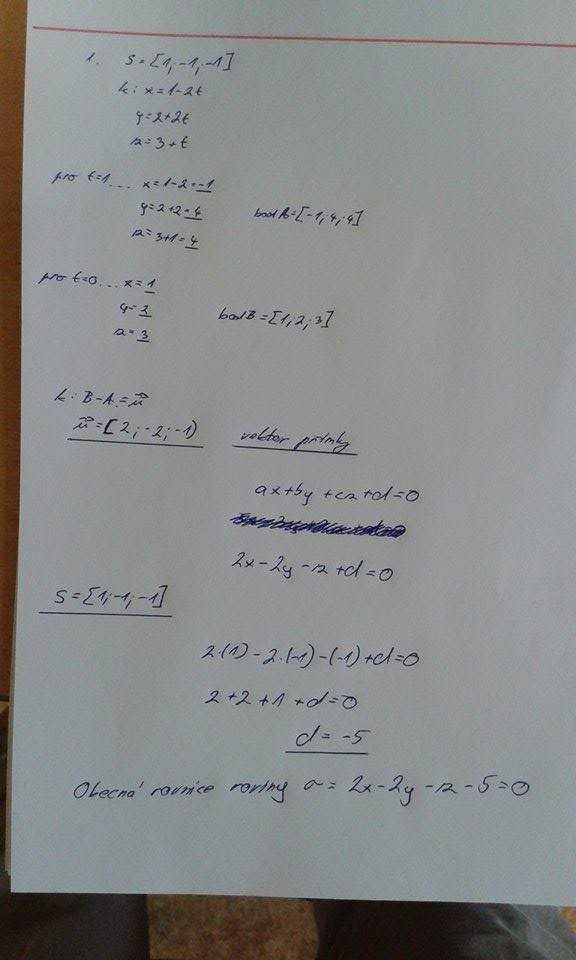 1. S=[1,-1,-1]
k: x=1-2t
y=2+2t
z=3+t
pro t=1... x=1-2=-1
y=2+2=4
z=3+1=4
bod A=[-1;4;4]
pro t=0... x=1
y=2
z=3
bod B=[1;2;3]
k: B-A=u⃗
u⃗=(2;-2;-1)
vektor přímky
ax+by+cz+d=0
2x-2y-z+d=0
S=[1;-1;-1]
2·(1)-2·(-1)-(-1)+d=0
2+2+1+d=0
d=-5
Obecná rovnice roviny σ= 2x-2y-z-5=0